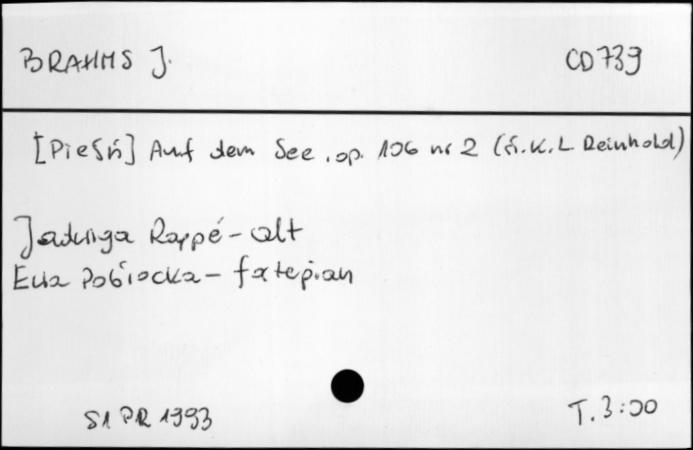 BRAHMS J. CD 739
[Pieśń] Auf dem See, op. 106 nr 2 (ś.K.L Reinhold)
Jadwiga Rappé - alt
Ewa Pobłocka - fortepian
S1 PR 1993 T. 3:00